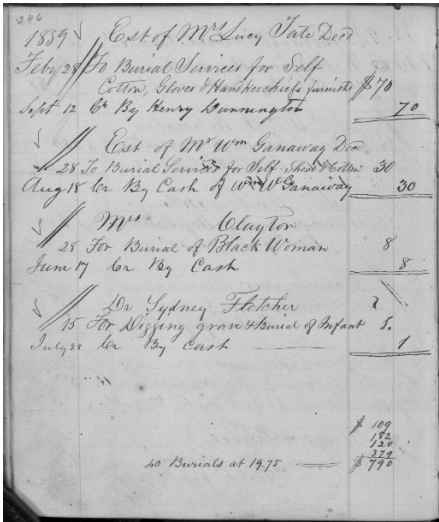 246
1859 Est of Mrs Lucy Tate Decd
Feby 28 To Burial Services for Self
Cotton, Gloves & Handkerchiefs furnished $70
Sept 12 Cr By Henry Dunnington 70
Est of Mr Wm Ganaway Decd
28 To Burial Services for Self Sheet & Cotton 30
Aug 18 Cr By Cash of Wm W Ganaway 30
Mrs Clayton
28 For Burial of Black Woman 8
June 17 Cr By Cash 8
Dr Sydney Fletcher
15 For Digging grave & Burial of Infant 1.
July 28 Cr By Cash 1
$ 109
182
120
379
40 Burials at 19.75 $ 790